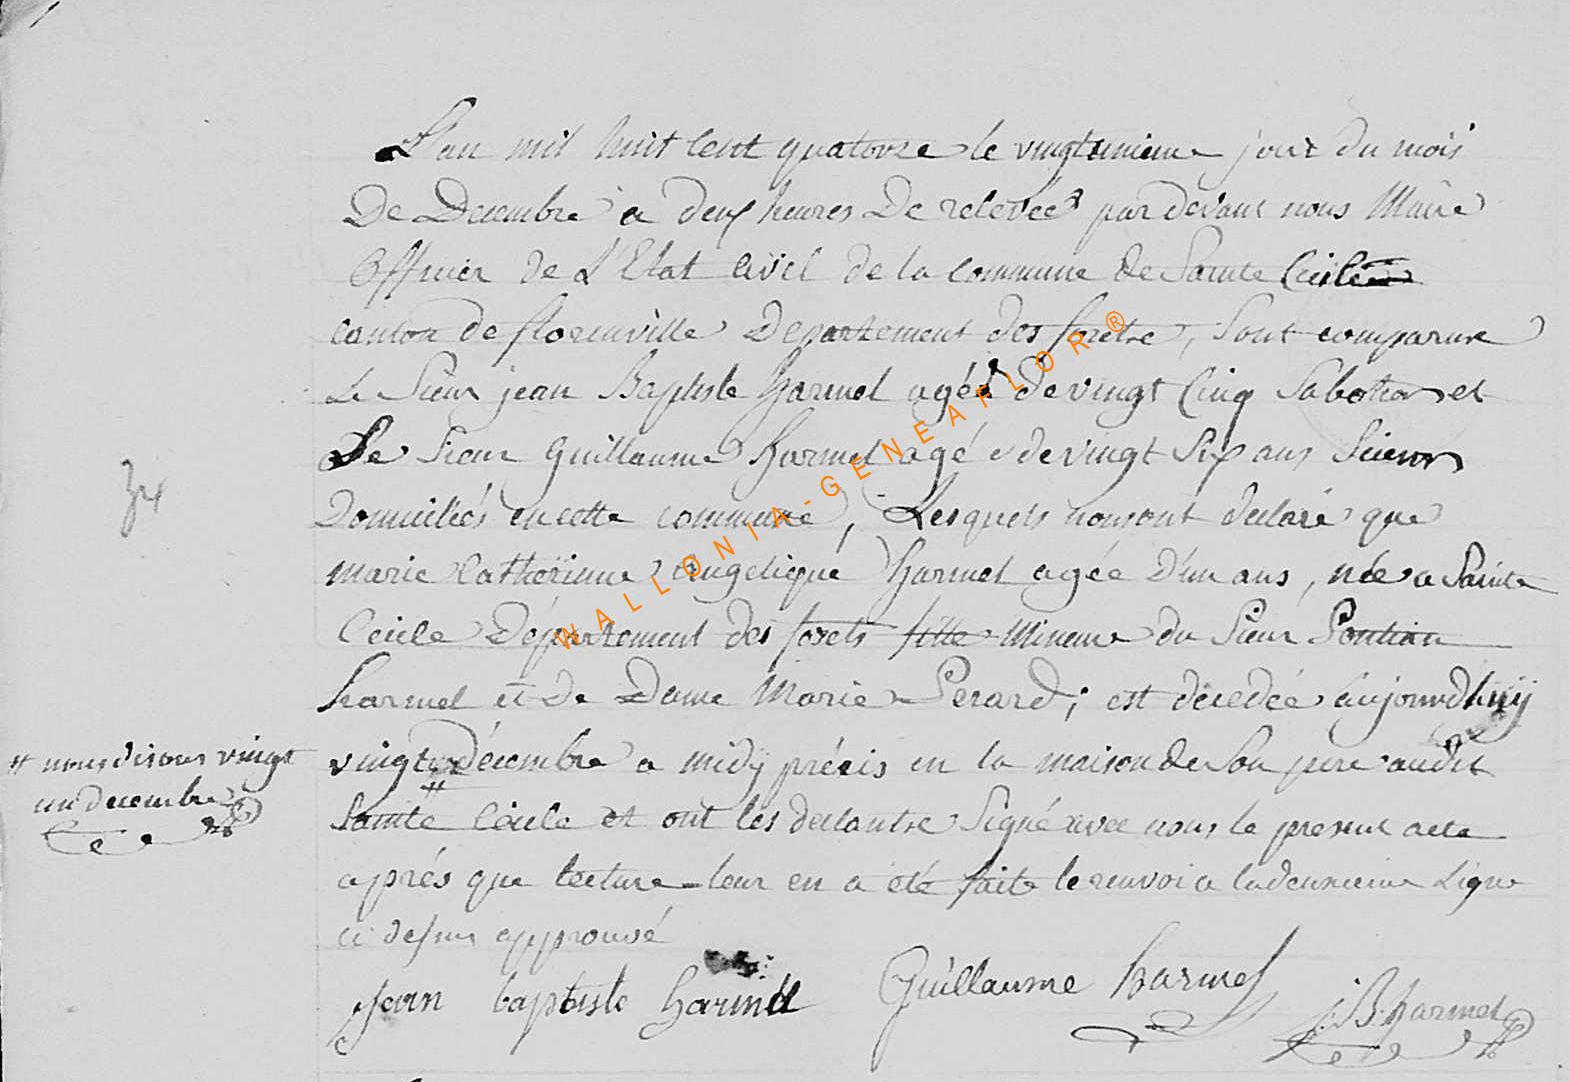 L'an mil huit cent quatorze le vingtunieme jour du mois
De Decembre a deux heures De relevée par devant nous Maire
Officier de L'Etat Civil de la commune de Sainte Cecile
canton de florenville Departement des foretre, sont comparure
Le Sieur jean Baptiste harmel agéé De vingt Cinq Sabotier et
Le Sieur guillaume harmel agé de vingt Six ans Scieur
Domiciliés en cette commune, Lesquels nous ont declaré que
34
marie Catherinne Angelique harmel agée D'un ans, née a Sainte
Cecile Département des forets fille Mineure du Sieur Pontian
harmel et De Dame Marie Perard; est décedée aujourdhuy
vingt décembre a midy précis en la maison de son pere audit
# nous disons vingt
un decembre
Sainte Cecile et ont les declantre Signé avec nous le present acte
aprés que lecture leur en a été faite le renvoi a la deuxieme Ligne
ci dessus approuvé
Jean baptiste harmel Guillaume harmel J:B:harmel
WALLONIA-GENEAFLOR®